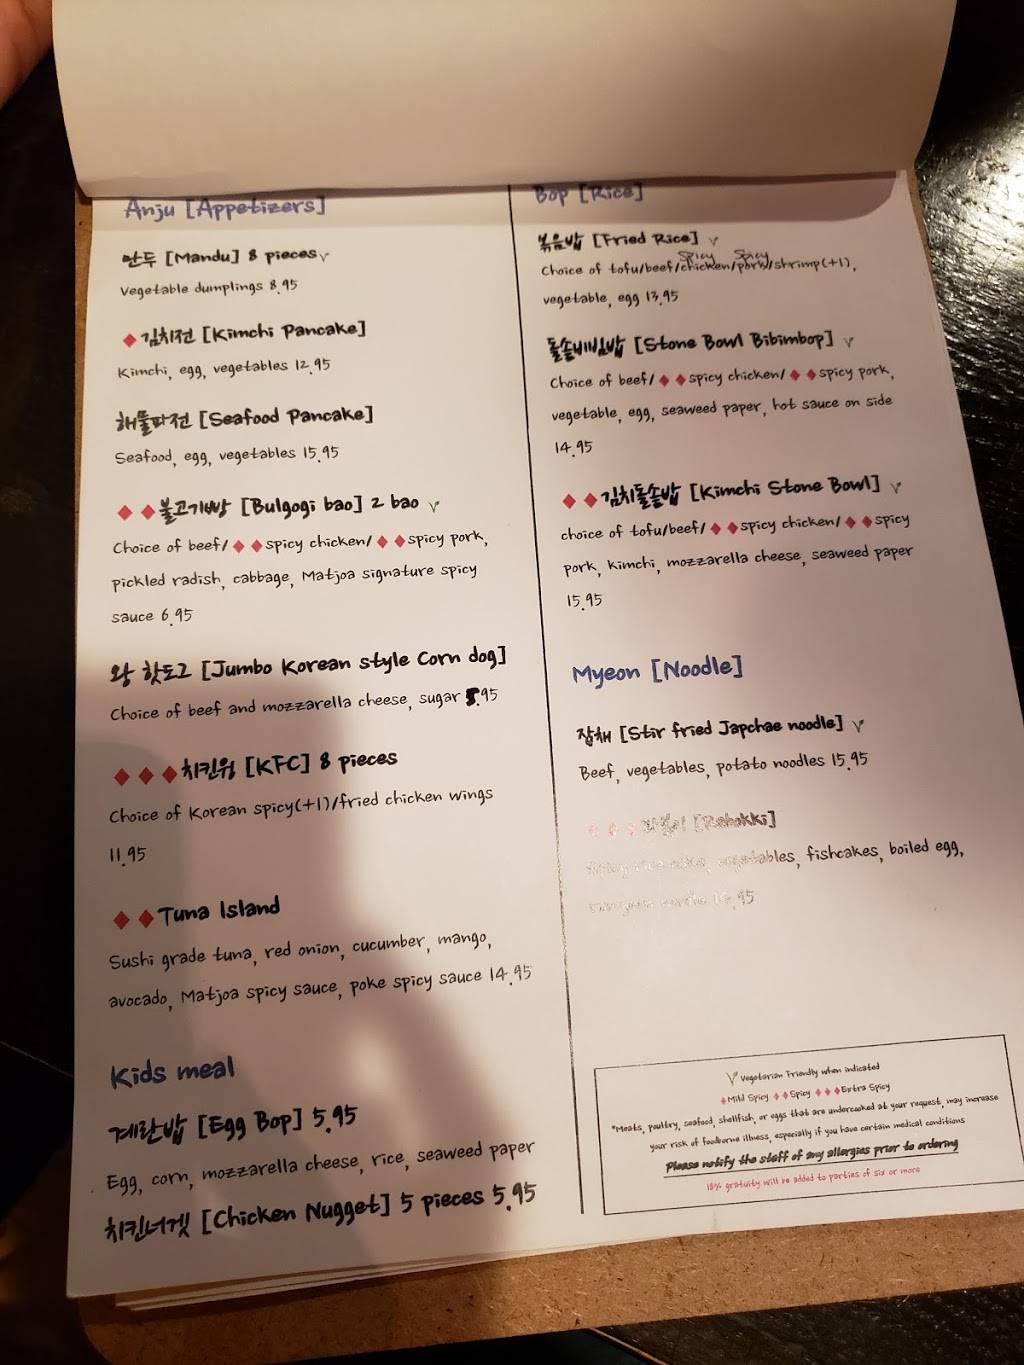 Anju [Appetizers]
만두 [Mandu] 8 pieces
Vegetable dumplings 8.95
김치전 [Kimchi Pancake]
Kimchi, egg, vegetables 12.95
해물파전 [Seafood Pancake]
Seafood, egg, vegetables 15.95
불고기빵 [Bulgogi bao] 2 bao
Choice of beef/ spicy chicken/ spicy pork,
pickled radish, cabbage, Matjoa signature spicy
sauce 6.95
왕 핫도그 [Jumbo Korean style Corn dog]
Choice of beef and mozzarella cheese, sugar 5.95
치킨윙 [KFC] 8 pieces
Choice of Korean spicy(+1)/fried chicken wings
11.95
Tuna Island
Sushi grade tuna, red onion, cucumber, mango,
avocado, Matjoa spicy sauce, poke spicy sauce 14.95
Kids meal
계란밥 [Egg Bop] 5.95
Egg, corn, mozzarella cheese, rice, seaweed paper
치킨너겟 [Chicken Nugget] 5 pieces 5.95
Bop [Rice]
볶음밥 [Fried Rice]
Spicy Spicy
Choice of tofu/beef/chicken/pork/shrimp(+1),
vegetable, egg 13.95
돌솥비빔밥 [Stone Bowl Bibimbop]
Choice of beef/ spicy chicken/ spicy pork,
vegetable, egg, seaweed paper, hot sauce on side
14.95
김치돌솥밥 [Kimchi Stone Bowl]
choice of tofu/beef/ spicy chicken/ spicy
pork, kimchi, mozzarella cheese, seaweed paper
15.95
Myeon [Noodle]
잡채 [Stir fried Japchae noodle]
Beef, vegetables, potato noodles 15.95
[Rabokki]
vegetables, fishcakes, boiled egg,
Vegetarian Friendly when indicated
Mild Spicy Spicy Extra Spicy
*Meats, poultry, seafood, shellfish, or eggs that are undercooked at your request, may increase
your risk of foodborne illness, especially if you have certain medical conditions
Please notify the staff of any allergies prior to ordering
18% gratuity will be added to parties of six or more